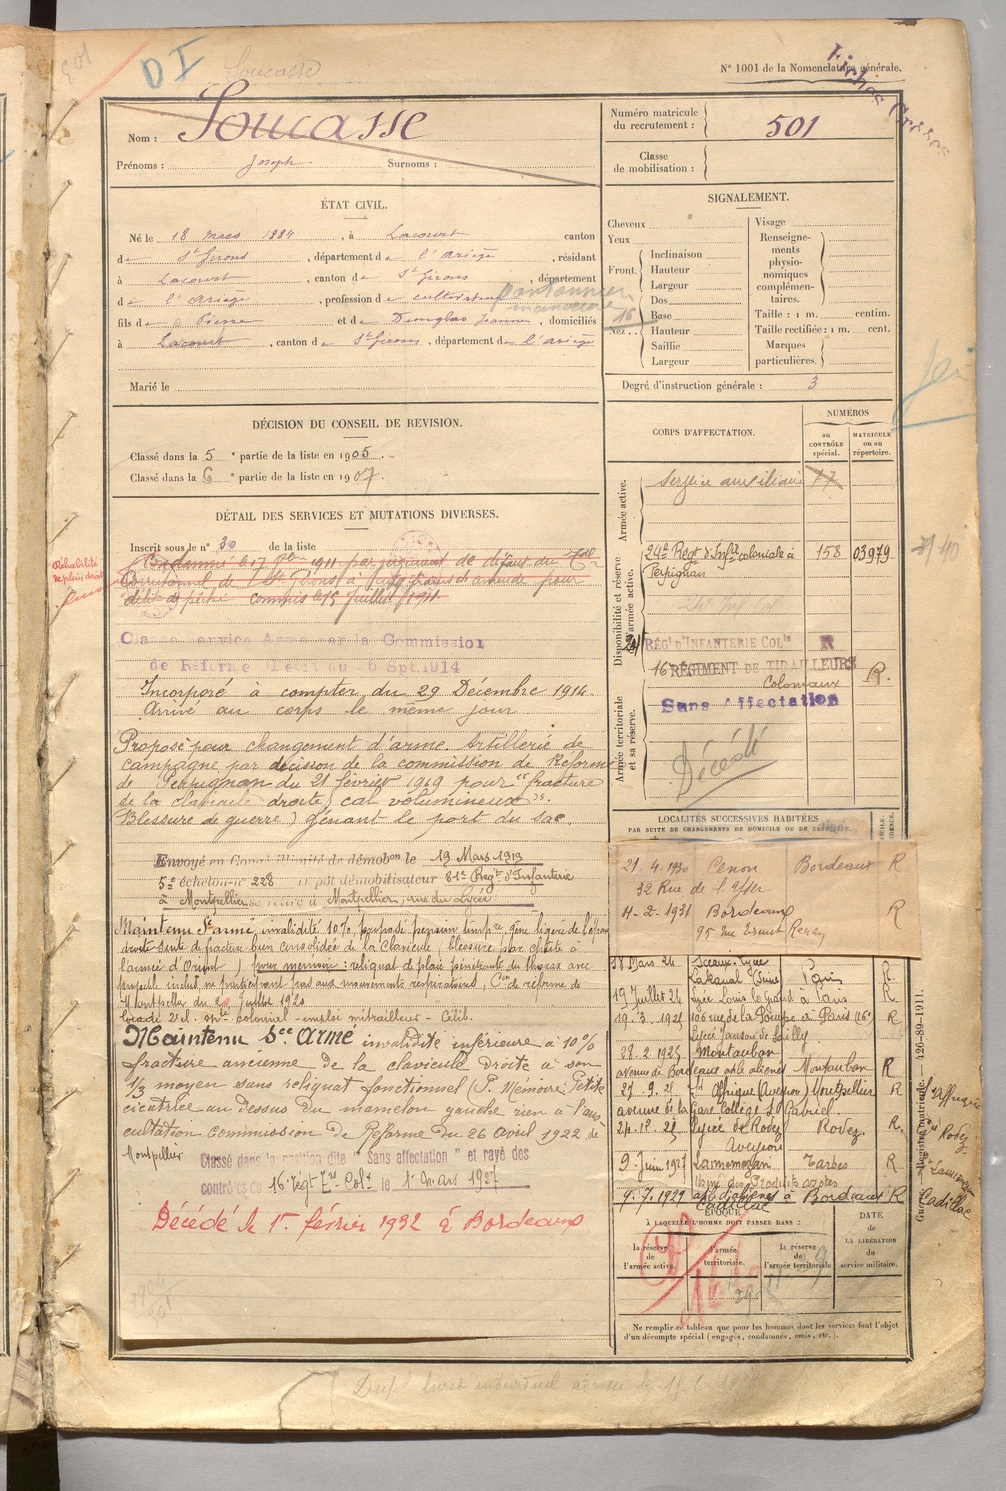 D I
Soucasse
N° 1001 de la Nomenclature générale.
Nom : Soucasse
Prénoms : Joseph Surnoms :
Numéro matricule du recrutement : 501
Classe de mobilisation :
ÉTAT CIVIL.
Né le 18 mars 1884, à Lacourt canton
de St Girons, département de l'Ariège, résidant
à Lacourt, canton de St Girons, département
de l'Ariège, profession de cultivateur
fils de Pierre et de Dougnac Jeanne, domiciliés
à Lacourt, canton de St Girons, département de l'Ariège
Marié le
SIGNALEMENT.
Cheveux
Yeux
Front. Inclinaison
Hauteur
Largeur
Nez Dos
Base
Hauteur
Saillie
Largeur
Visage
Renseignements physionomiques complémentaires.
Taille : 1 m. centim.
Taille rectifiée : 1 m. cent.
Marques particulières.
Degré d'instruction générale : 3
DÉCISION DU CONSEIL DE REVISION.
Classé dans la 5e partie de la liste en 1905
Classé dans la 6e partie de la liste en 1907
DÉTAIL DES SERVICES ET MUTATIONS DIVERSES.
Inscrit sous le n° 30 de la liste
Réhabilité de plein droit
Condamné le 17 1911 par jugement de défaut du Tal
Correctionnel de St Girons à amende pour
délit de pêche commis le 15 Juillet 1911.
Classé service Armé par la Commission
de Réforme Décit du 26 Spt. 1914
Incorporé à compter du 29 Décembre 1914.
Arrivé au corps le même jour
Proposé pour changement d'arme Artillerie de
campagne par décision de la commission de Réforme
de Perpignan du 21 février 1919 pour "fracture
de la clavicule droite, cal volumineux".
(Blessure de guerre) gênant le port du sac.
Envoyé en Congé illimité de démobon le 19 Mars 1919
5e échelon n° 228 Dépôt démobilisateur 81e Régt d'Infanterie
à Montpellier se retire à Montpellier, rue du Lycée
Maintenu St armé, invalidité 10%, gêne légère de l'épaule
droite suite de fracture bien consolidée de la Clavicule, (blessure par chute à
l'armée d'Orient) pour mémoire : reliquat de plaie pénétrante du thorax avec
projectile inclus, ne participant pas aux mouvements respiratoires, Con de réforme de
Montpellier du 2 Juillet 1920
Maintenu Sce Armé invalidité inférieure à 10%
fracture ancienne de la clavicule droite à son
1/3 moyen sans reliquat fonctionnel (P. Mémoire) Petite
cicatrice au dessus du mamelon gauche rien à l'aus
cultation commission de Réforme du 26 Avril 1922 de
Montpellier
Classé dans la position dite "Sans affectation" et rayé des
contrôles du 16 Régt Tir. Colx le 1er Mars 1927
Décédé le 1er février 1932 à Bordeaux
CORPS D'AFFECTATION.
NUMÉROS
au CONTRÔLE spécial.
MATRICULE ou au répertoire.
Armée active.
Service auxiliaire 77
Disponibilité et réserve de l'armée active.
24e Régt d'Infie coloniale à Perpignan 158 03979
24 RÉGt D'INFANTERIE COLle R
16 RÉGIMENT DE TIRAILLEURS Coloniaux R.
Armée territoriale et sa réserve.
Sans Affectation
Décédé
LOCALITÉS SUCCESSIVES HABITÉES
PAR SUITE DE CHANGEMENTS DE DOMICILE OU DE RÉSIDENCE.
21.4.1930 Cenon Bordeaux R
32 Rue de l'Yser
4-2-1931 Bordeaux R
95 rue Ernest Renan
18 Mars 24 Sceaux, Lycée Lakanal (Seine) Paris R
19 Juillet 24 Lycée Louis le Grand à Paris R
19.3.1925 106 rue de la Pompe à Paris (16e) R
Lycée Janson de Sailly
28.2.1925 Montauban
avenue de Bordeaux asile aliénés Montauban R
27.9.25 St Affrique (Aveyron) Montpellier R
avenue de la Gare Collège St Gabriel
24.12.25 Lycée de Rodez Rodez R.
Aveyron
9 Juin 1927 Lannemezan Tarbes R
Usine des Produits azotés
9.7.1929 asile d'aliénés à Cadillac Bordeaux R
St Affrique
Rodez
Lannemezan
Cadillac
ÉPOQUE
À LAQUELLE L'HOMME DOIT PASSER DANS :
la réserve de l'armée active.
l'armée territoriale.
la réserve de l'armée territoriale
DATE de LA LIBÉRATION du service militaire.
Ne remplir ce tableau que pour les hommes dont les services font l'objet
d'un décompte spécial (engagés, condamnés, omis, etc.).